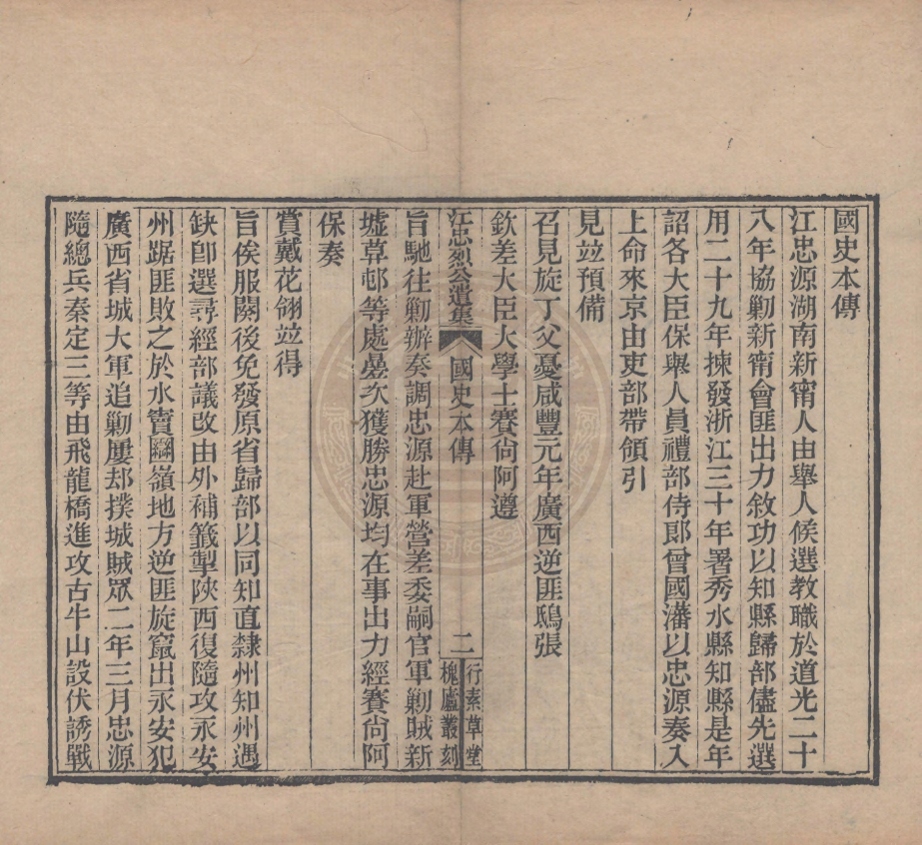 國史本傳
江忠源湖南新甯人由舉人候選教職於道光二十
八年協勦新甯會匪出力敘功以知縣歸部儘先選
用二十九年揀發浙江三十年署秀水縣知縣是年
詔各大臣保舉人員禮部侍郎曾國藩以忠源奏入
上命來京由吏部帶領引
見竝預備
召見旋丁父憂咸豐元年廣西逆匪鴟張
欽差大臣大學士賽尙阿遵
江忠烈公遺集 國史本傳 二 行素草堂 槐廬叢刻
旨馳往勦辦奏調忠源赴軍營差委嗣官軍勦賊新
墟草邨等處疊次獲勝忠源均在事出力經賽尙阿
保奏
賞戴花翎竝得
旨俟服闋後免發原省歸部以同知直隸州知州遇
缺卽選尋經部議改由外補籤掣陝西復隨攻永安
州踞匪敗之於水竇嶺地方逆匪旋竄出永安犯
廣西省城大軍追勦屢却撲城賊眾二年三月忠源
隨總兵秦定三等由飛龍橋進攻古牛山設伏誘戰